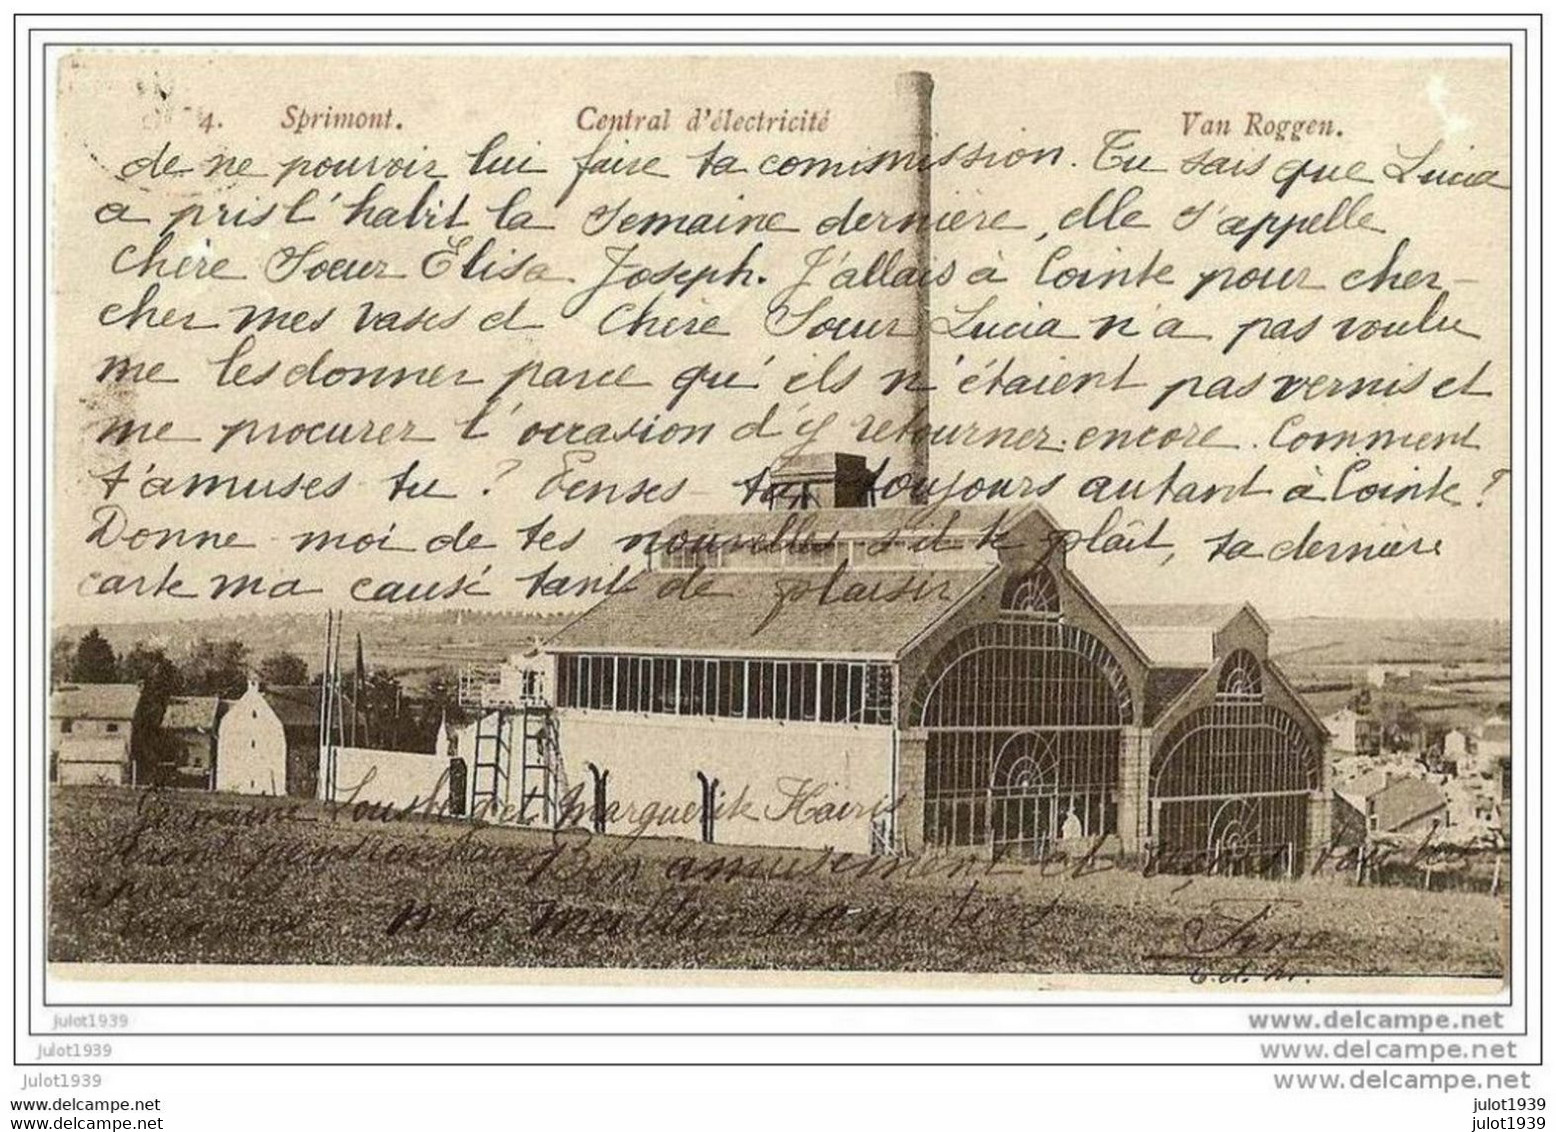 4. Sprimont. Central d'électricité Van Roggen.
de ne pouvoir lui faire ta commission. Tu sais que Lucia
a pris l'habit la semaine dernière, elle s'appelle
Chère Soeur Elisa Joseph. J'allais à Cointe pour cher-
cher mes vases et Chère Soeur Lucia n'a pas voulu
me les donner parce qu'ils n'étaient pas vernis et
me procurer l'occasion d'y retourner encore. Comment
t'amuses-tu? Penses-tu toujours autant à Cointe?
Donne-moi de tes nouvelles s'il te plaît, ta dernière
carte m'a causé tant de plaisir
et Marguerite
Bon amusement et
mes meilleures amitiés
Fine
julot1939
www.delcampe.net
julot1939
www.delcampe.net
julot1939
www.delcampe.net
julot1939
julot1939
julot1939
julot1939